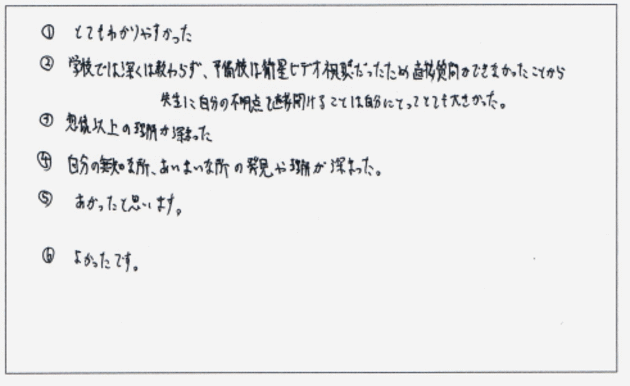 ① とてもわかりやすかった
② 学校では深くは教わらず、予備校は衛星ビデオ視聴だったため直接質問ができなかったことから
先生に自分の不明点を直接聞けることは自分にとってとても大きかった。
③ 想像以上の理解が深まった
④ 自分の無知な所、あいまいな所の発見や理解が深まった。
⑤ あがったと思います。
⑥ よかったです。